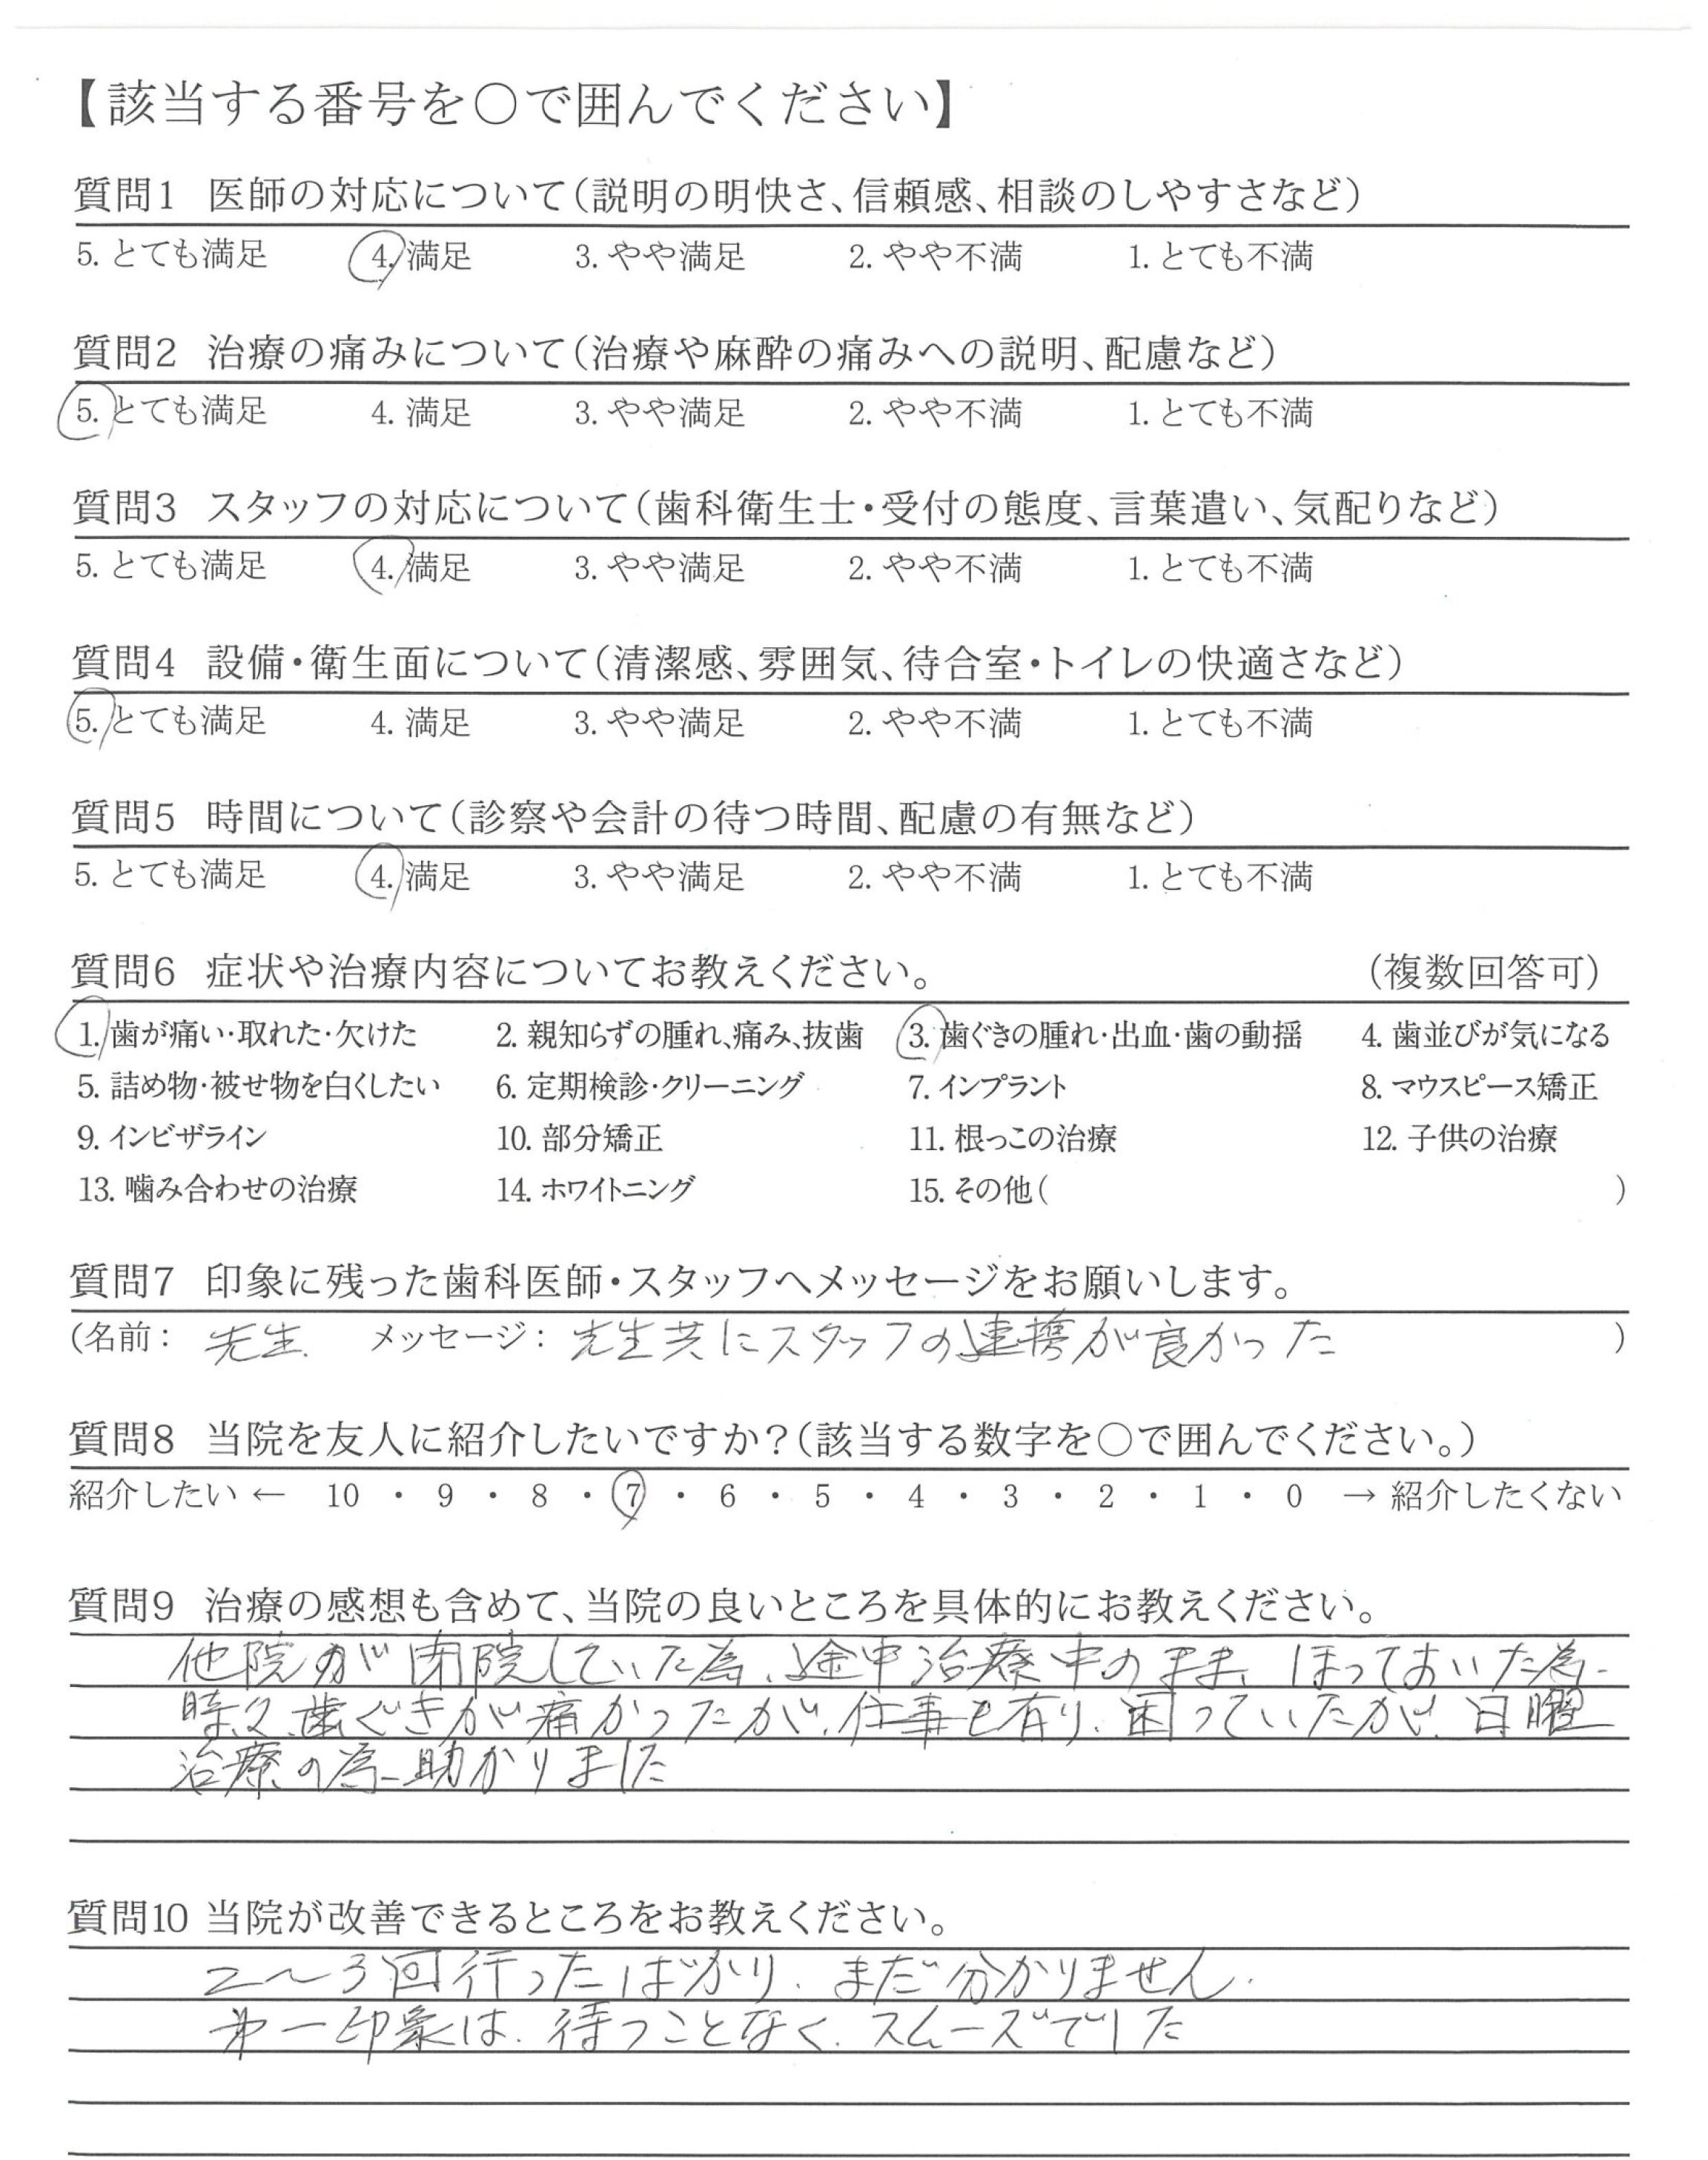 【該当する番号を○で囲んでください】
質問1 医師の対応について(説明の明快さ、信頼感、相談のしやすさなど)
5. とても満足 4. 満足 3. やや満足 2. やや不満 1. とても不満
質問2 治療の痛みについて(治療や麻酔の痛みへの説明、配慮など)
5. とても満足 4. 満足 3. やや満足 2. やや不満 1. とても不満
質問3 スタッフの対応について(歯科衛生士・受付の態度、言葉遣い、気配りなど)
5. とても満足 4. 満足 3. やや満足 2. やや不満 1. とても不満
質問4 設備・衛生面について(清潔感、雰囲気、待合室・トイレの快適さなど)
5. とても満足 4. 満足 3. やや満足 2. やや不満 1. とても不満
質問5 時間について(診察や会計の待つ時間、配慮の有無など)
5. とても満足 4. 満足 3. やや満足 2. やや不満 1. とても不満
質問6 症状や治療内容についてお教えください。 (複数回答可)
1. 歯が痛い・取れた・欠けた 2. 親知らずの腫れ、痛み、抜歯 3. 歯ぐきの腫れ・出血・歯の動揺 4. 歯並びが気になる
5. 詰め物・被せ物を白くしたい 6. 定期検診・クリーニング 7. インプラント 8. マウスピース矯正
9. インビザライン 10. 部分矯正 11. 根っこの治療 12. 子供の治療
13. 噛み合わせの治療 14. ホワイトニング 15. その他( )
質問7 印象に残った歯科医師・スタッフへメッセージをお願いします。
(名前: 先生. メッセージ: 先生共にスタッフの連携が良かった )
質問8 当院を友人に紹介したいですか?(該当する数字を○で囲んでください。)
紹介したい ← 10 ・ 9 ・ 8 ・ 7 ・ 6 ・ 5 ・ 4 ・ 3 ・ 2 ・ 1 ・ 0 → 紹介したくない
質問9 治療の感想も含めて、当院の良いところを具体的にお教えください。
他院が閉院していた為、途中治療中のまま、ほっておいた為
時々歯ぐきが痛かったが、仕事も有り、困っていたが、日曜
治療の為助かりました
質問10 当院が改善できるところをお教えください。
2〜3回行ったばかり、まだ分かりません.
第一印象は、待つことなく、スムーズでした